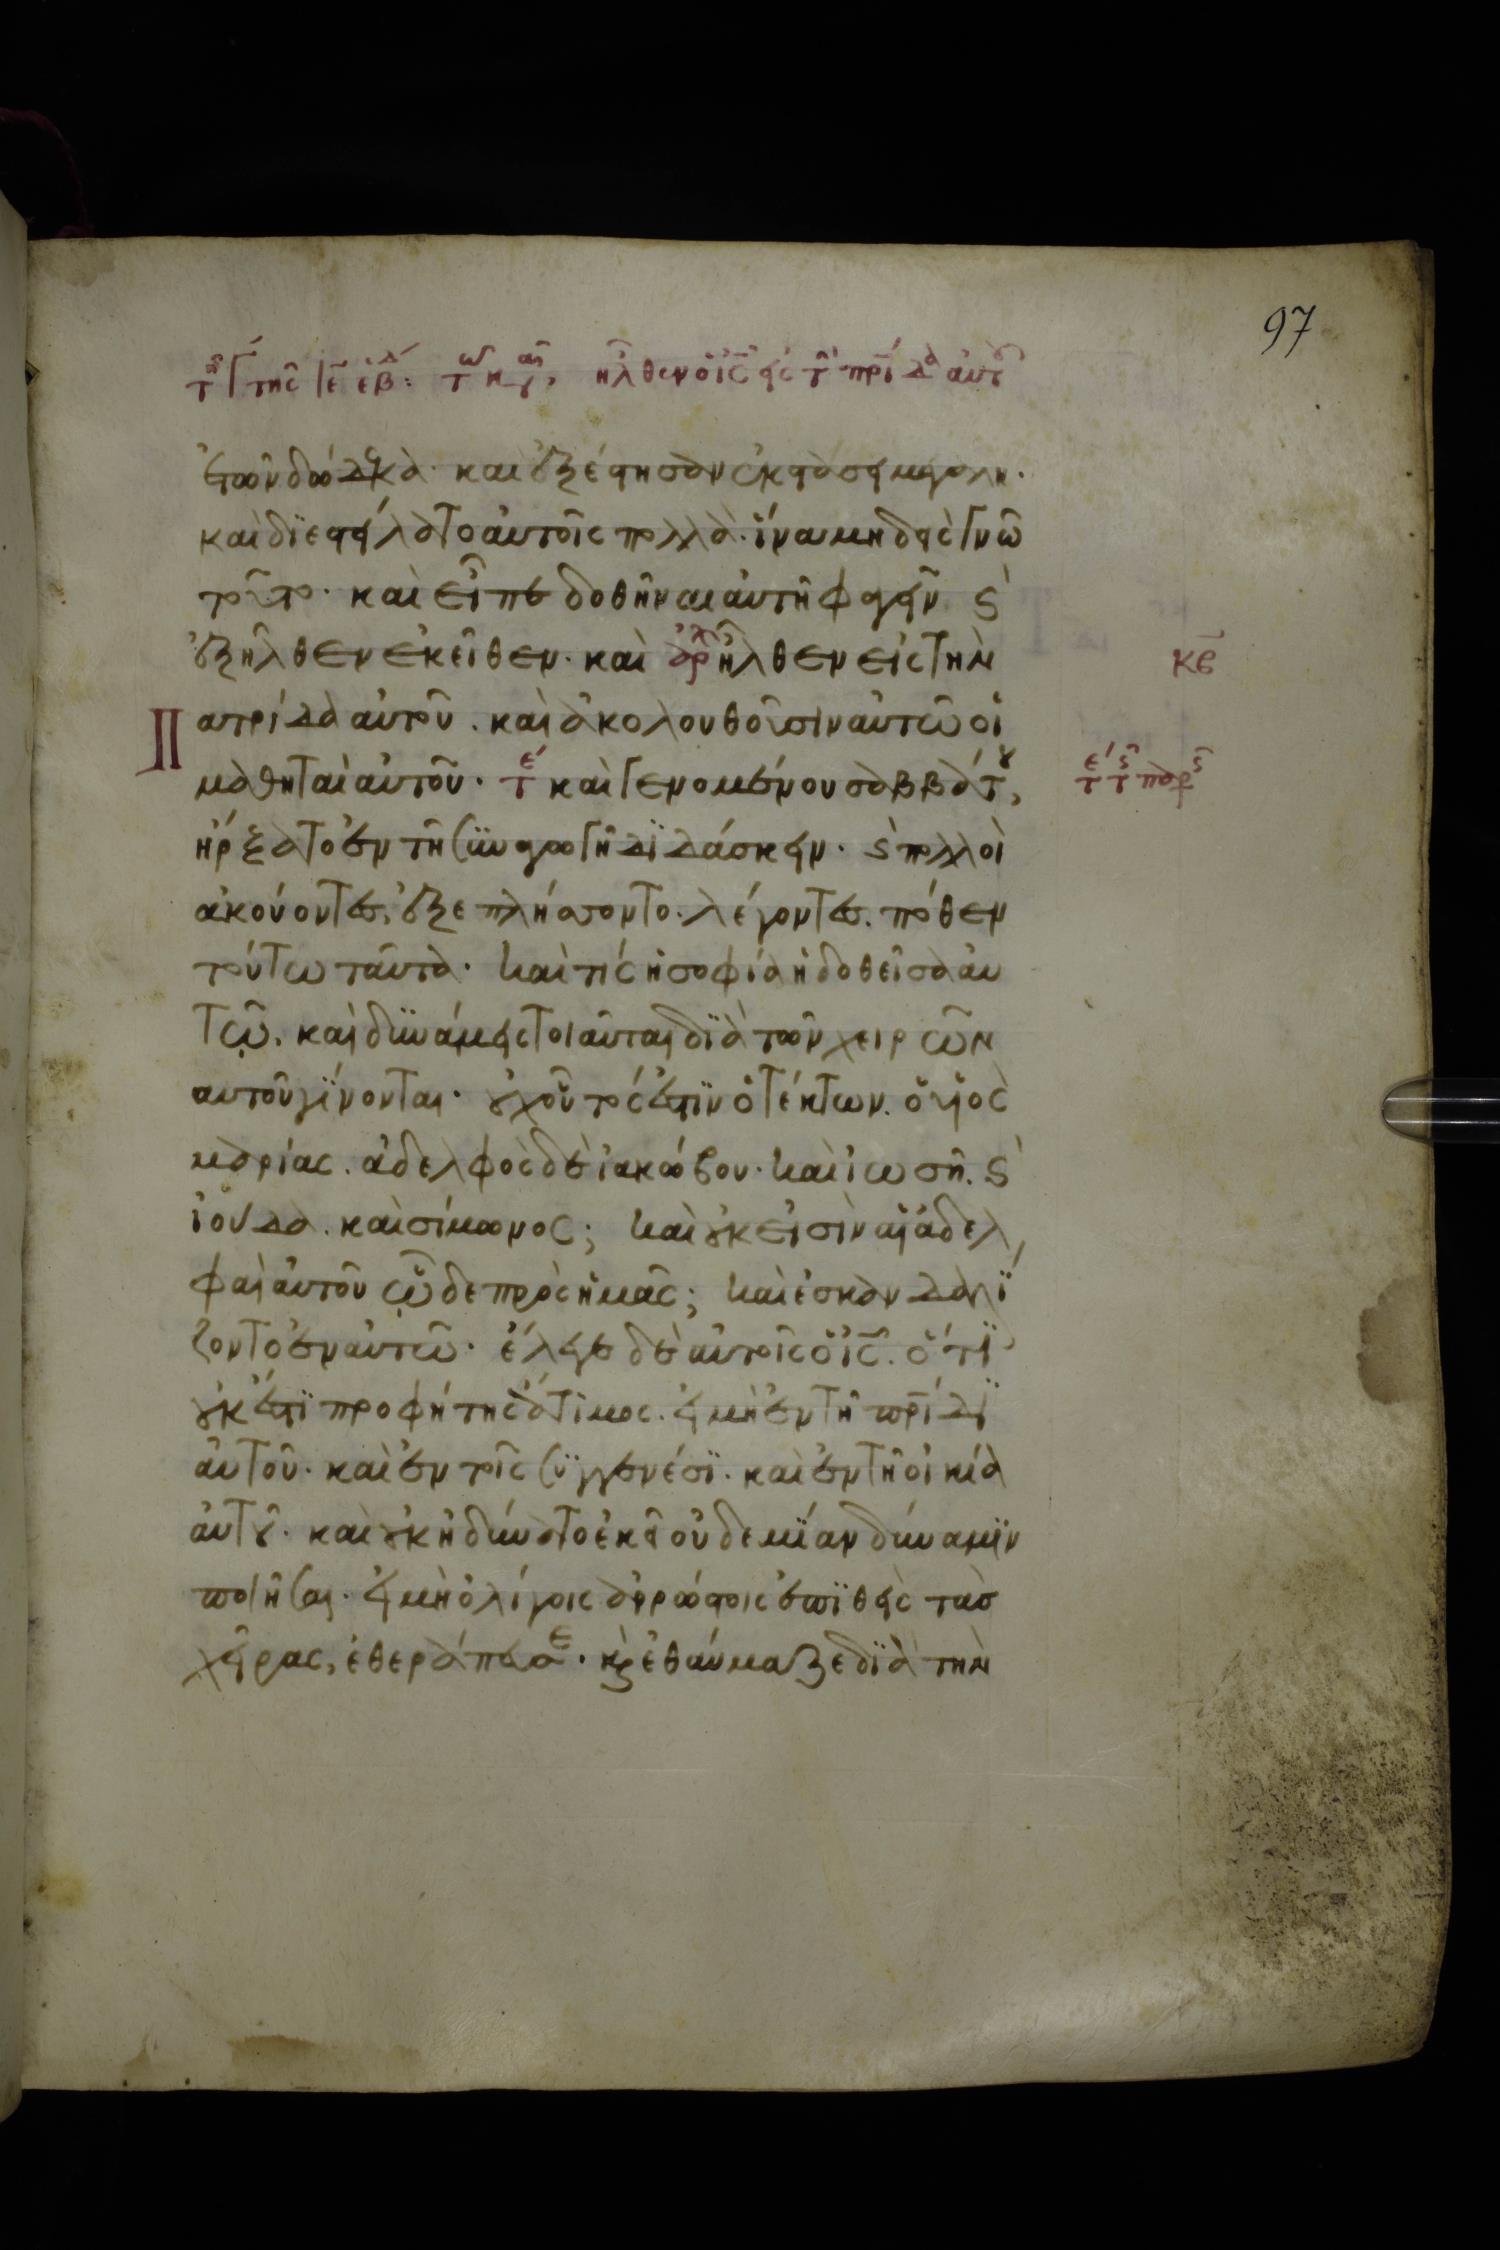 97
τῇ γ́ τῆς ιε ἑβδ: τω κ αγγ, ἦλθεν ὁ ἰ̅ς̅ εἰς τὴν πρ̅ίδα αὐτοῦ
ἐτῶν δώδεκα· καὶ ἐξέστησαν ἐκστάσει μεγάλη·
καὶ διεστείλατο αὐτοῖς πολλὰ· ἵνα μηδεὶς γνῶ
τοῦτο· καὶ εἶπε δοθῆναι αὐτῆ φαγεῖν ϛ̀
ἐξῆλθεν ἐκεῖθεν· καὶ ἀρχ ἦλθεν εἰς τὴν
κε̅
Π
ατρίδα αὐτοῦ. καὶ ἀκολουθοῦσιν αὐτῶ οἱ
μαθηταὶ αὐτοῦ· τε καὶ γενομένου σαββάτου,
ἤρξατο ἐν τῆ συναγωγῆ διδάσκειν· ϛ̀ πολλοὶ
ἀκούοντες, ἐξεπλήσσοντο. λέγοντες. πόθεν
τούτω ταῦτα· καὶ τίς ἡ σοφία ἡ δοθεῖσα αυ
τῶ. καὶ δυνάμεις τοιαῦται διὰ τῶν χειρῶν
αυτοῦ γίνονται· οὐχ οὗτός ἐστιν ὁ τέκτων. ὁ υἱὸς
μαρίας. ἀδελφὸς δὲ ἰακώβου· καὶ ἰωσῆ. ϛ̀
ἰούδα. καὶ σίμωνος; καὶ οὐκ εἰσὶν αἱ ἀδελ
φαὶ αὐτοῦ ὧδε πρὸς ἡμᾶς; καὶ ἐσκανδαλί
ζοντο ἐν αὐτῶ· ἔλεγε δὲ αὐτοῖς ὁ ἰ̅ς̅. ὅτι
οὐκ ἔστι προφήτης ἄτιμος. εἰ μὴ ἐν τῆ πρ̅ίδι
αὐτοῦ· καὶ ἐν τοῖς συγγενέσι. καὶ ἐν τῆ οἰκία
αὐτοῦ· καὶ οὐκ ἠδύνατο ἐκεῖ οὐδεμίαν δύναμιν
ποιῆσαι· εἰ μὴ ὀλίγοις ἀρρώστοις ἐπιθεὶς τὰσ
χεῖρας, ἐθεράπευσε· κὲ ἐθαύμαζε διὰ τὴν